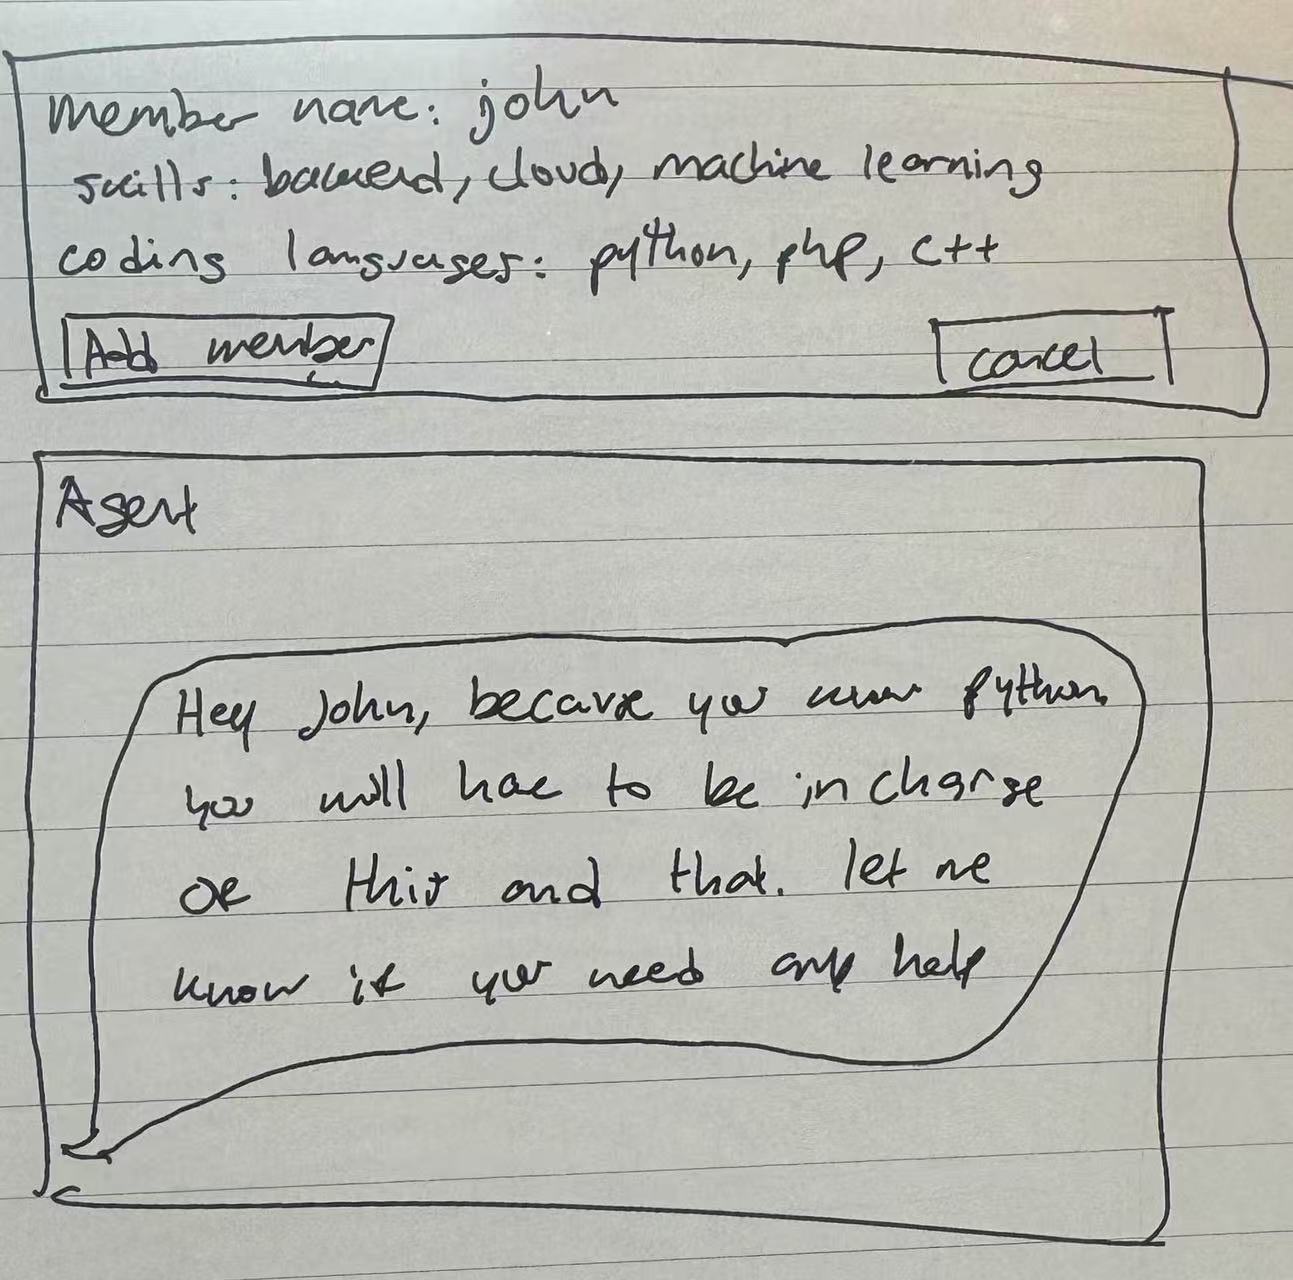 member name: john
skills: backend, cloud, machine learning
coding languages: python, php, c++
Add member
cancel
Agent
Hey John, because you know python
you will have to be in charge
of this and that. let me
know if you need any help